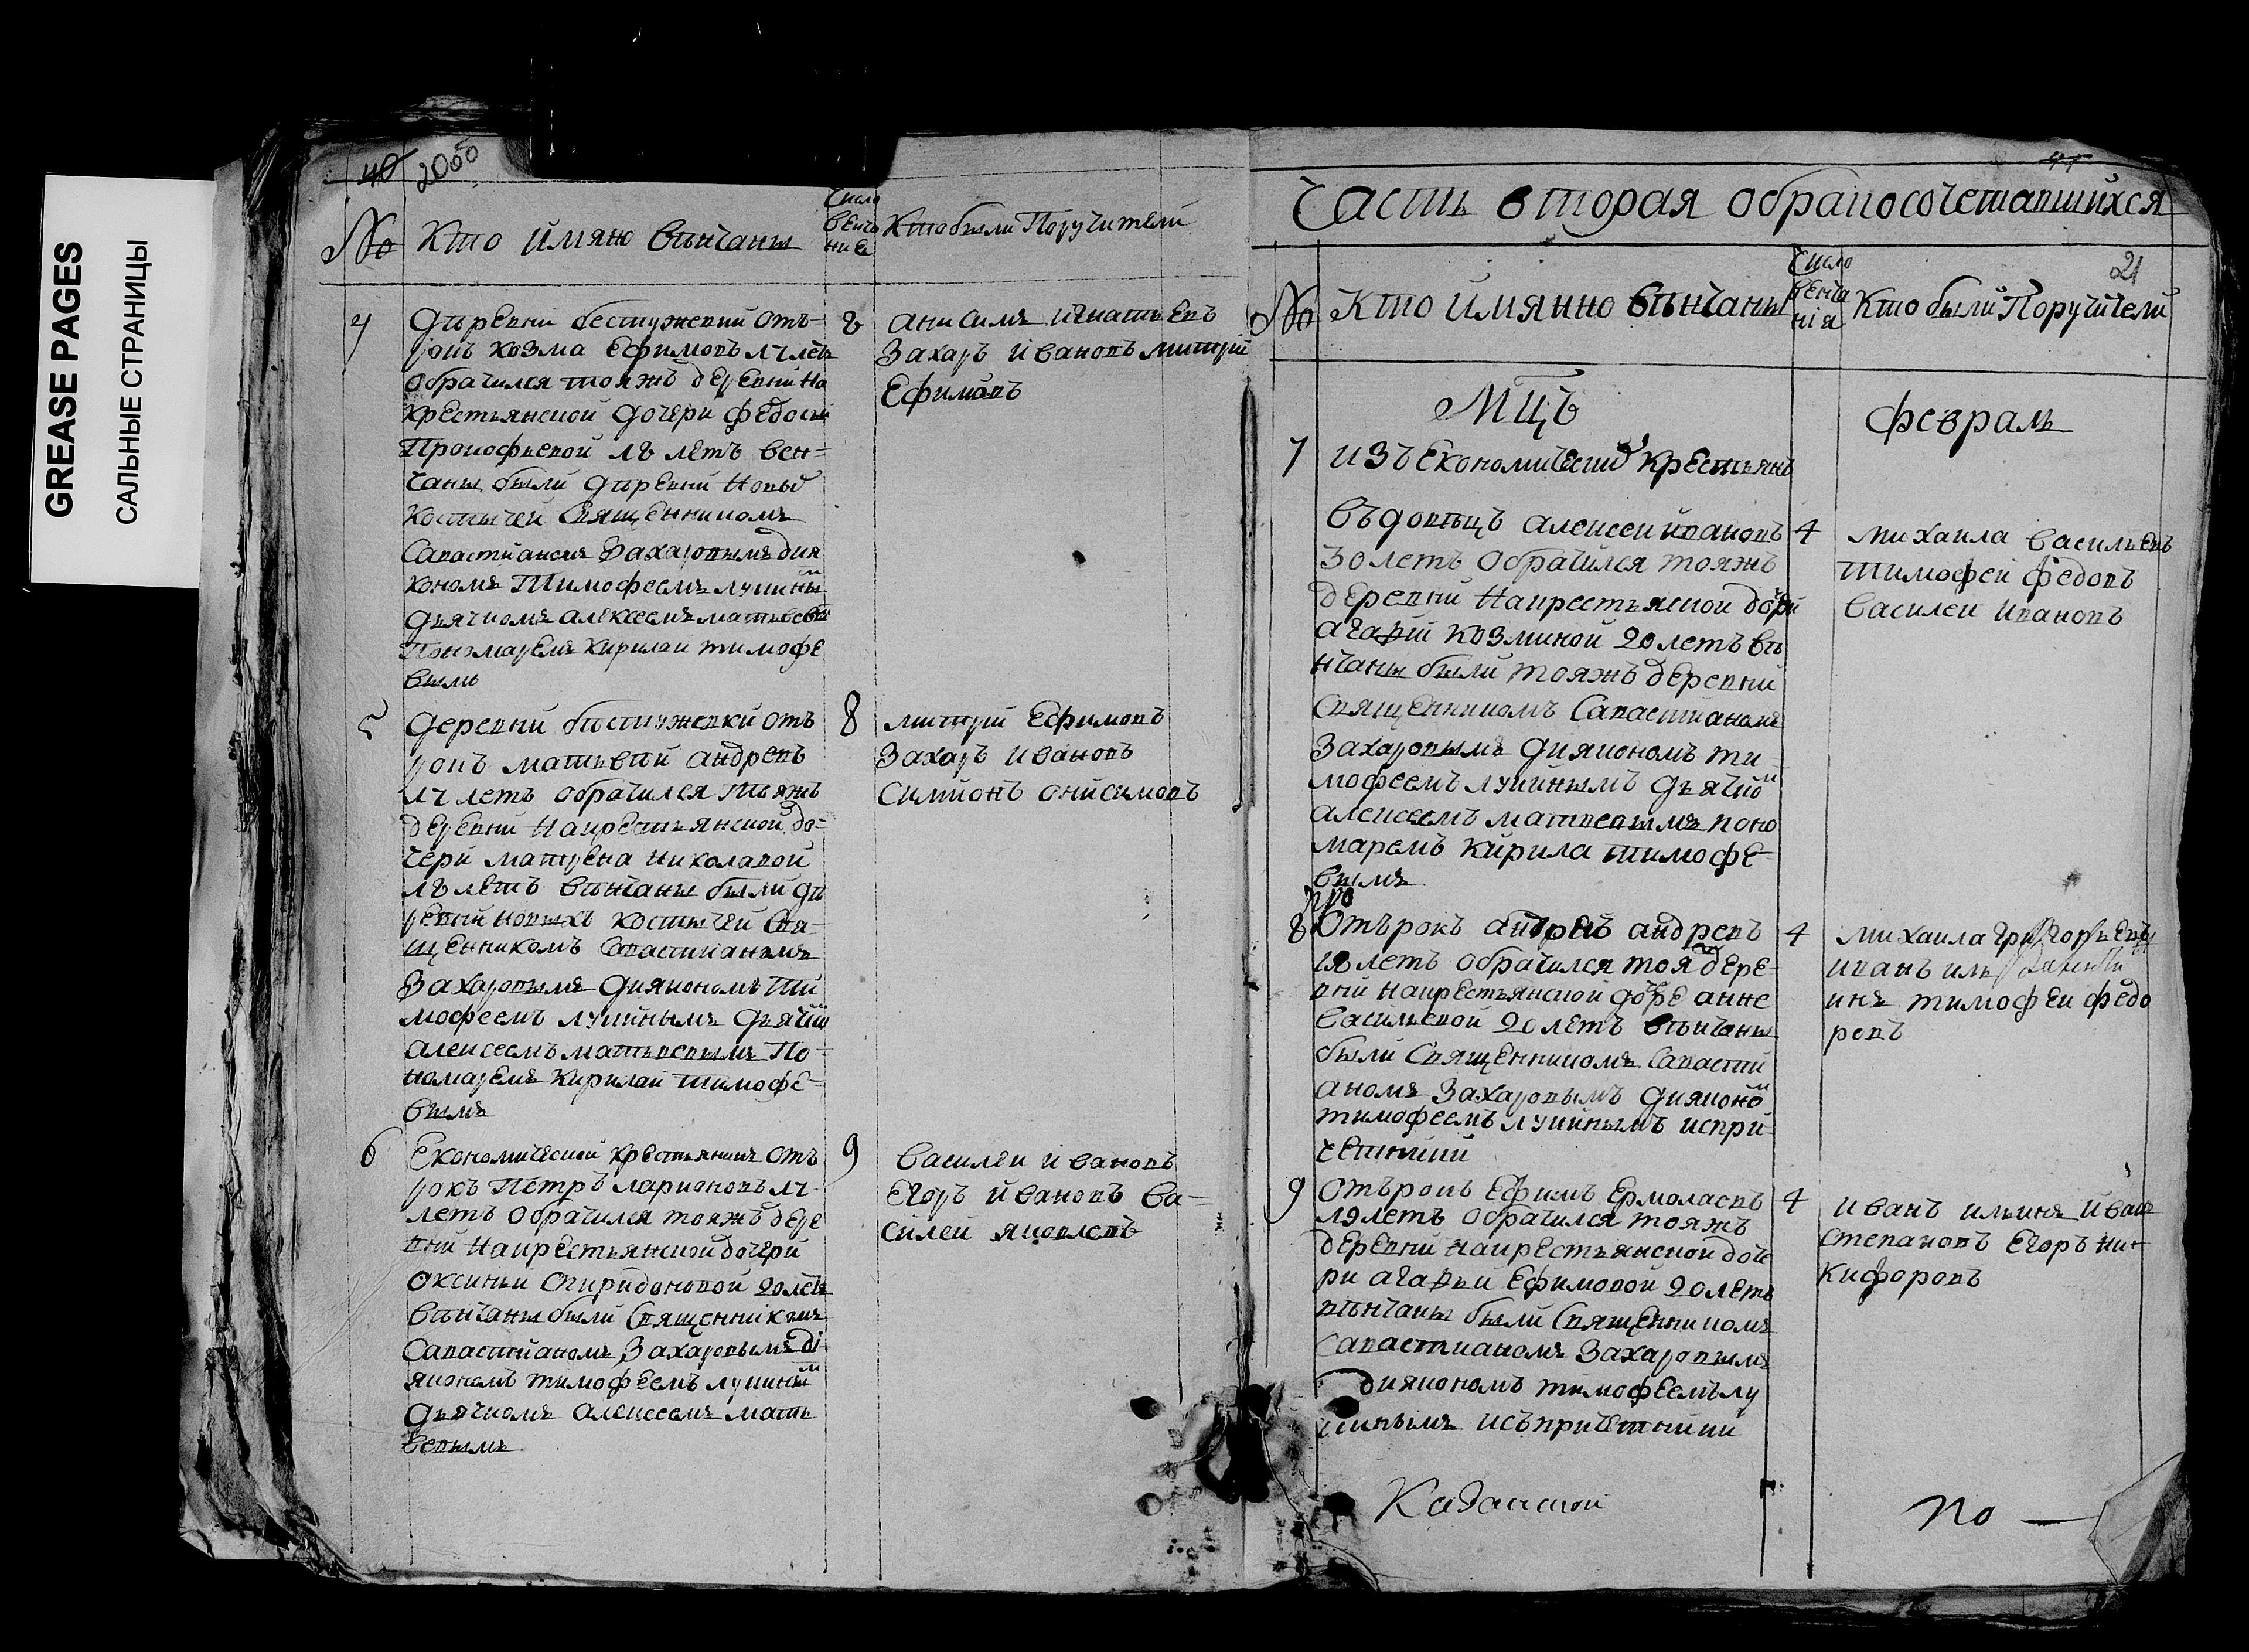 GREASE PAGES
САЛЬНЫЕ СТРАНИЦЫ
40 2000
№ Кто имяно вѣнчаны
Число венча ние
Кто были Поручители
4 Дѣревни бестужевки отъ-
рокъ козма Ефимовъ лѣтъ
обрачился тояжъ деревни на
крестьянской дочери федосьи
Прокофьевой лѣтъ вен-
чаны были дѣревни Новыхъ
костычей Священникомъ
Савастианомъ Захаровымъ дия
кономъ Тимофеемъ лукинымъ
дьячкомъ алексеемъ матвеевы
Пономаремъ кирилаи тимофе
вымъ
8 анисимъ игнатьевъ
Захаръ ивановъ митрий
Ефимовъ
5 Деревни бестужевки отъ
рокъ матьвѣй андревъ
летъ обрачился тояжъ
деревни накрестьянской до-
чери матрена николавой
летъ вѣнчаны были дѣ
ревни новыхъ костычей Свя-
щенникомъ Савастианомъ
Захаровымъ диякономъ ти
мофеемъ лукинымъ дьячком
алексеемъ матьвевымъ По-
номаремъ кирилаи тимофе-
вымъ
8 митрий Ефимовъ
Захаръ ивановъ
Симионъ онисимовъ
6 Економической крестьянинъ отъ
рокъ Петръ ларионовъ
летъ обрачился тояжъ дере
вни накрестьянской дочери
оксиньи спиридоновой 20 летъ
вѣнчаны были Священнікомъ
Савастианомъ Захаровымъ ді-
якономъ тимофеемъ лукиным
дьячкомъ алексеемъ мать
вевымъ
9 Василеи ивановъ
Егоръ ивановъ ва-
силей яковлевъ
41
Часть вторая обракосочетавшихся
21
№ Кто имянно вѣнчаны
Число венча нія
Кто были Поручители
Мцъ февраль
7 изъ Економическихъ крестьянъ
въдовѣцъ алексеи ивановъ
30 летъ обрачился тояжъ
деревни накрестьяской дочери
агафіи козминой 20 летъ вѣ
нчаны были тояжъ деревни
Священникомъ Савастианомъ
Захаровымъ диякономъ ти-
мофеемъ лукинымъ дьячком
алексеемъ матвевымъ поно
маремъ кирила тимофе-
вымъ
4 михаила васильевъ
тимофей федовъ
василеи ивановъ
8 Отърокъ андрей андревъ
летъ обрачился тояжъ дере-
вни накрестьянской дочере анне
васильевой 20 летъ вѣнчаны
были Священникомъ Савасти
аномъ Захаровымъ дияконом
тимофеемъ лукинымъ испри-
четники
4 михаила григорьевъ
иванъ
инъ тимофеи федо
ровъ
9 Отърокъ Ефимъ Ермолаевъ
летъ обрачился тояжъ
деревни накрестьянской доче
ри агафьи Ефимовой 20 летъ
вѣнчаны были Священникомъ
Савастианомъ Захаровымъ
диякономъ тимофеемъ лу
кинымъ исъпричетники
4 иванъ ильинъ иванъ
степановъ Егоръ ни-
кифоровъ
Казанской
по —